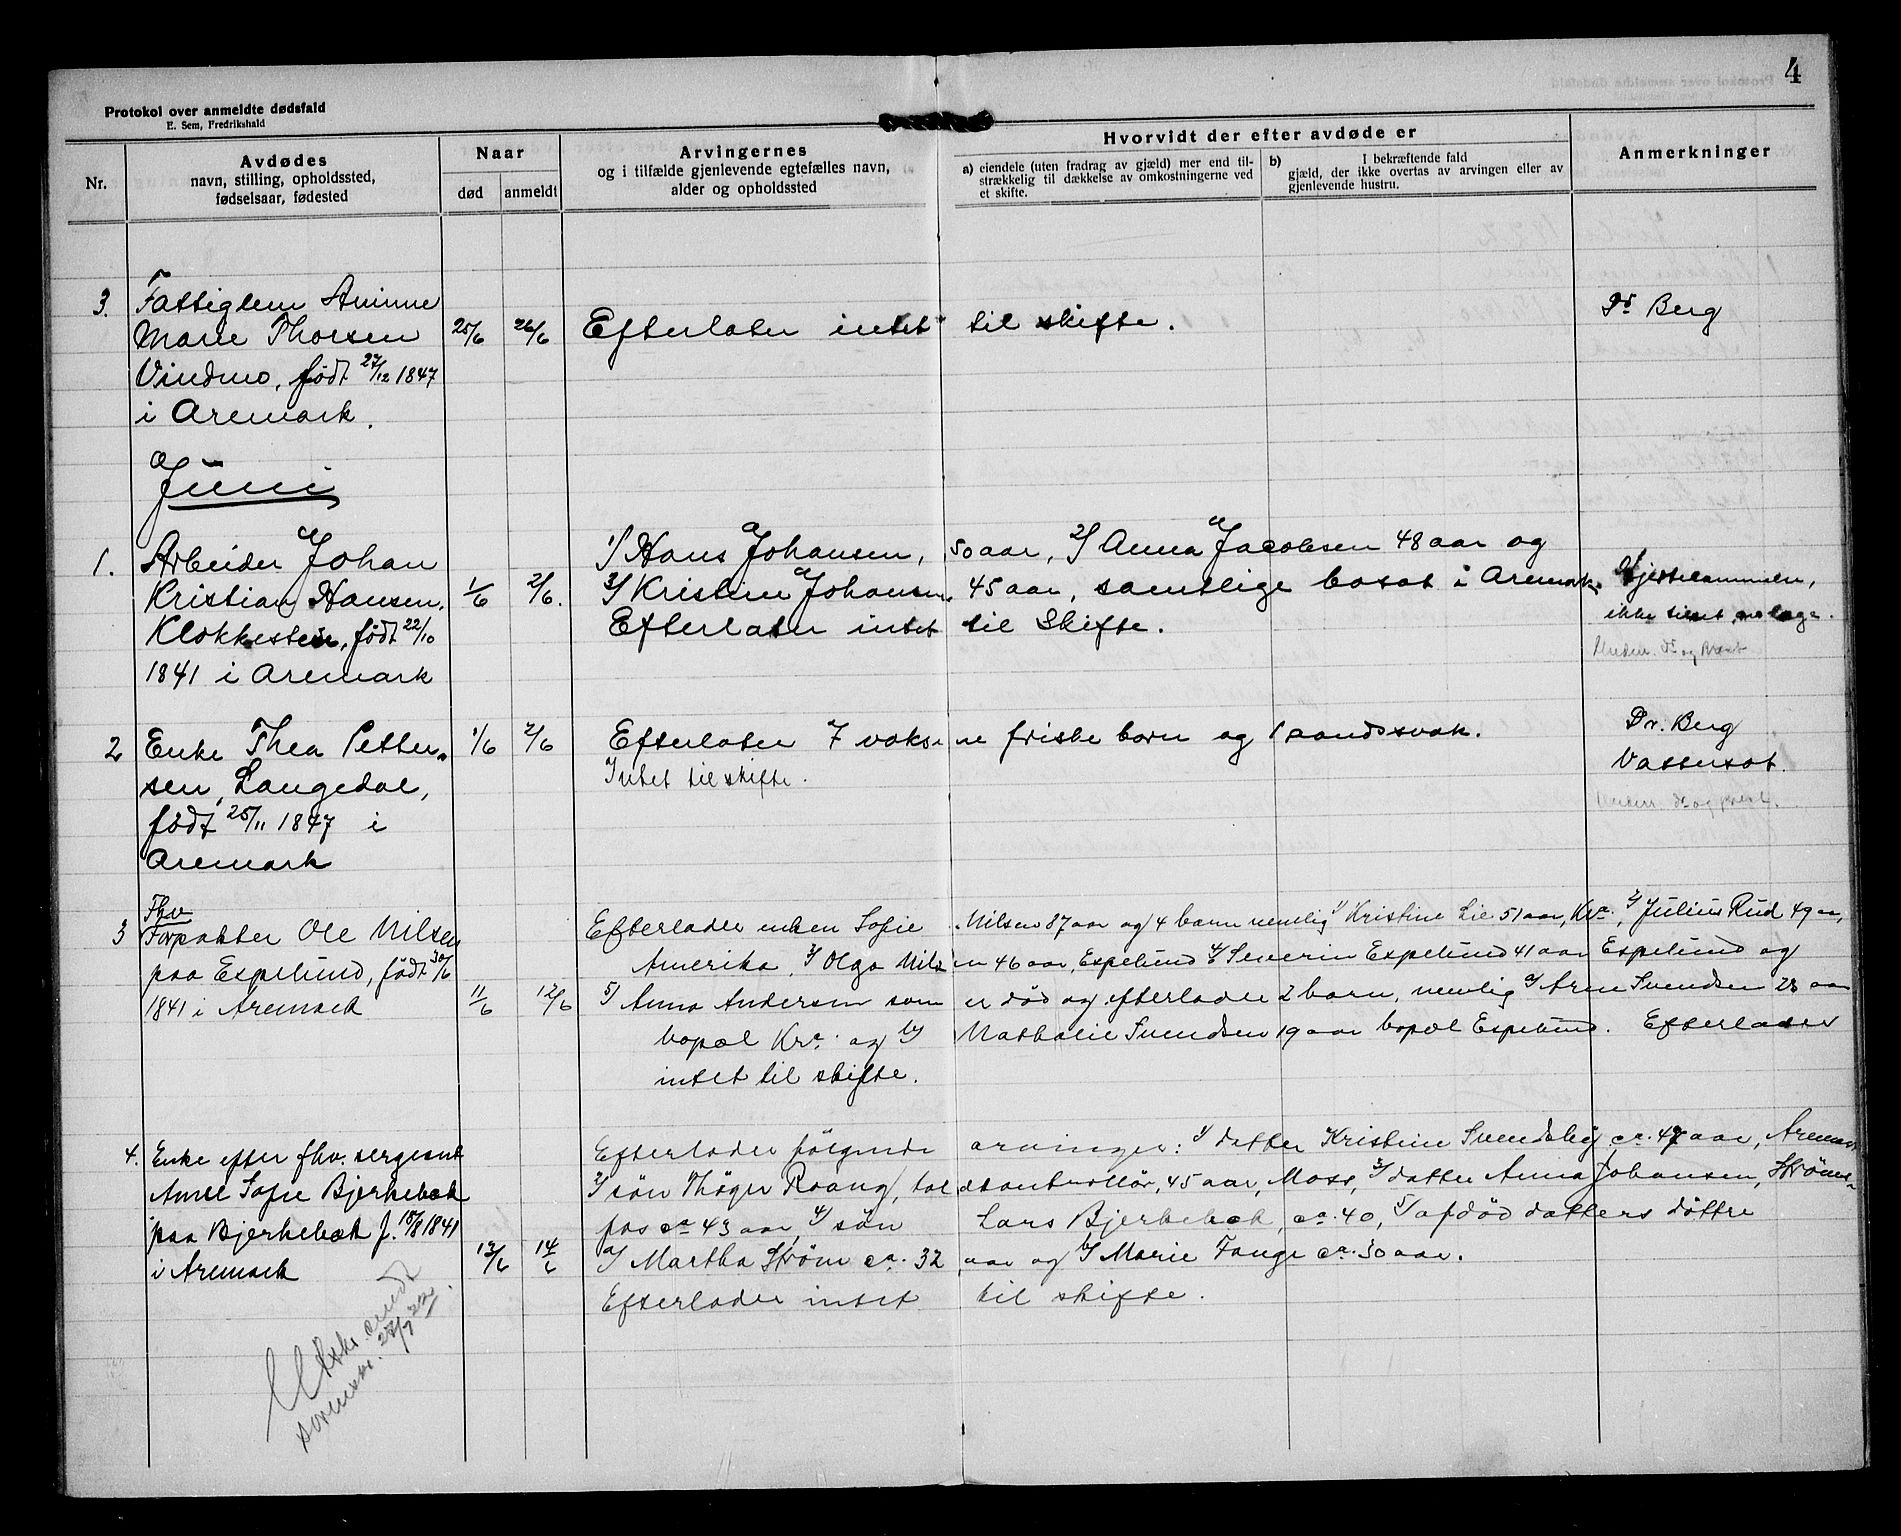 4
Protokol over anmeldte dødsfald
E. Sem, Fredrikshald
Nr.
Avdødes
navn, stilling, opholdssted,
fødselsaar, fødested
Naar
død
anmeldt
Arvingernes
og i tilfælde gjenlevende egtefælles navn,
alder og opholdssted
Hvorvidt der efter avdøde er
a) eiendele (uten fradrag av gjæld) mer end til-
strækkelig til dækkelse av omkostningerne ved
et skifte.
b) I bekræftende fald
gjæld, der ikke overtas av arvingen eller av
gjenlevende hustru.
Anmerkninger
3. Fattiglem
Marie Thorsen 25/6 26/6 Efterlater intet til skifte. Dr Berg
Vindmo, født 27/12 1847
i Aremark.
Juni
1. Arbeider Johan 1/ Hans Johansen, 50 aar, 2/ Anna Jacobsen 48 aar og
Kristian Hansen, 1/6 2/6. 3/ Kristine Johansen, 45 aar, samtlige bosat i Aremark.
Klokkestein, født 22/10 Efterlater intet til Skifte. ikke læge.
1841 i Aremark
2 Enke Thea Petter- 1/6 2/6 Efterlater 7 voksne friske barn og 1 aandssvak. Dr. Berg
sen, Langedal, Intet til skifte. Vattersot.
født 25/11 1847 i
Aremark
Fhv
3 Forpakter Ole Nilsen Efterlader enken Sofie Nilsen 87 aar og 4 barn nemlig 1/ Kristine Lie 51 aar, Kra., 2/ Julius Rud 49 aar,
paa Espelund, født 30/6 Amerika, 3/ Olga Nilsen 46 aar, Espelund 4/ Severin Espelund 41 aar Espelund og
1841 i Aremark 11/6 12/6 5/ Anna Andersen som er død og efterlader 2 barn, nemlig a/ Arne Svendsen 28 aar
bopæl Kra. og b/ Mathalie Svendsen 19 aar bopæl Espelund. Efterlader
intet til skifte.
4. Enke efter fhv. sergeant Efterlader følgende arvinger: 1/ datter Kristine Svendsby ca. 47 aar, Aremark
Anne Sofie Bjerkebæk 2/ søn Thøger Raang, toldkontrollør, 45 aar, Moss, 3/ datter Anna Johansen, Strøms-
paa Bjerkebæk f. 18/8 1841 fos ca 43 aar, 4/ søn Lars Bjerkebæk, ca. 40, 5/ afdød datters døttre
i Aremark 13/6 14/6 a/ Martha Strøm ca. 32 aar og b/ Marie Fange ca. 30 aar.
Efterlader intet til skifte.